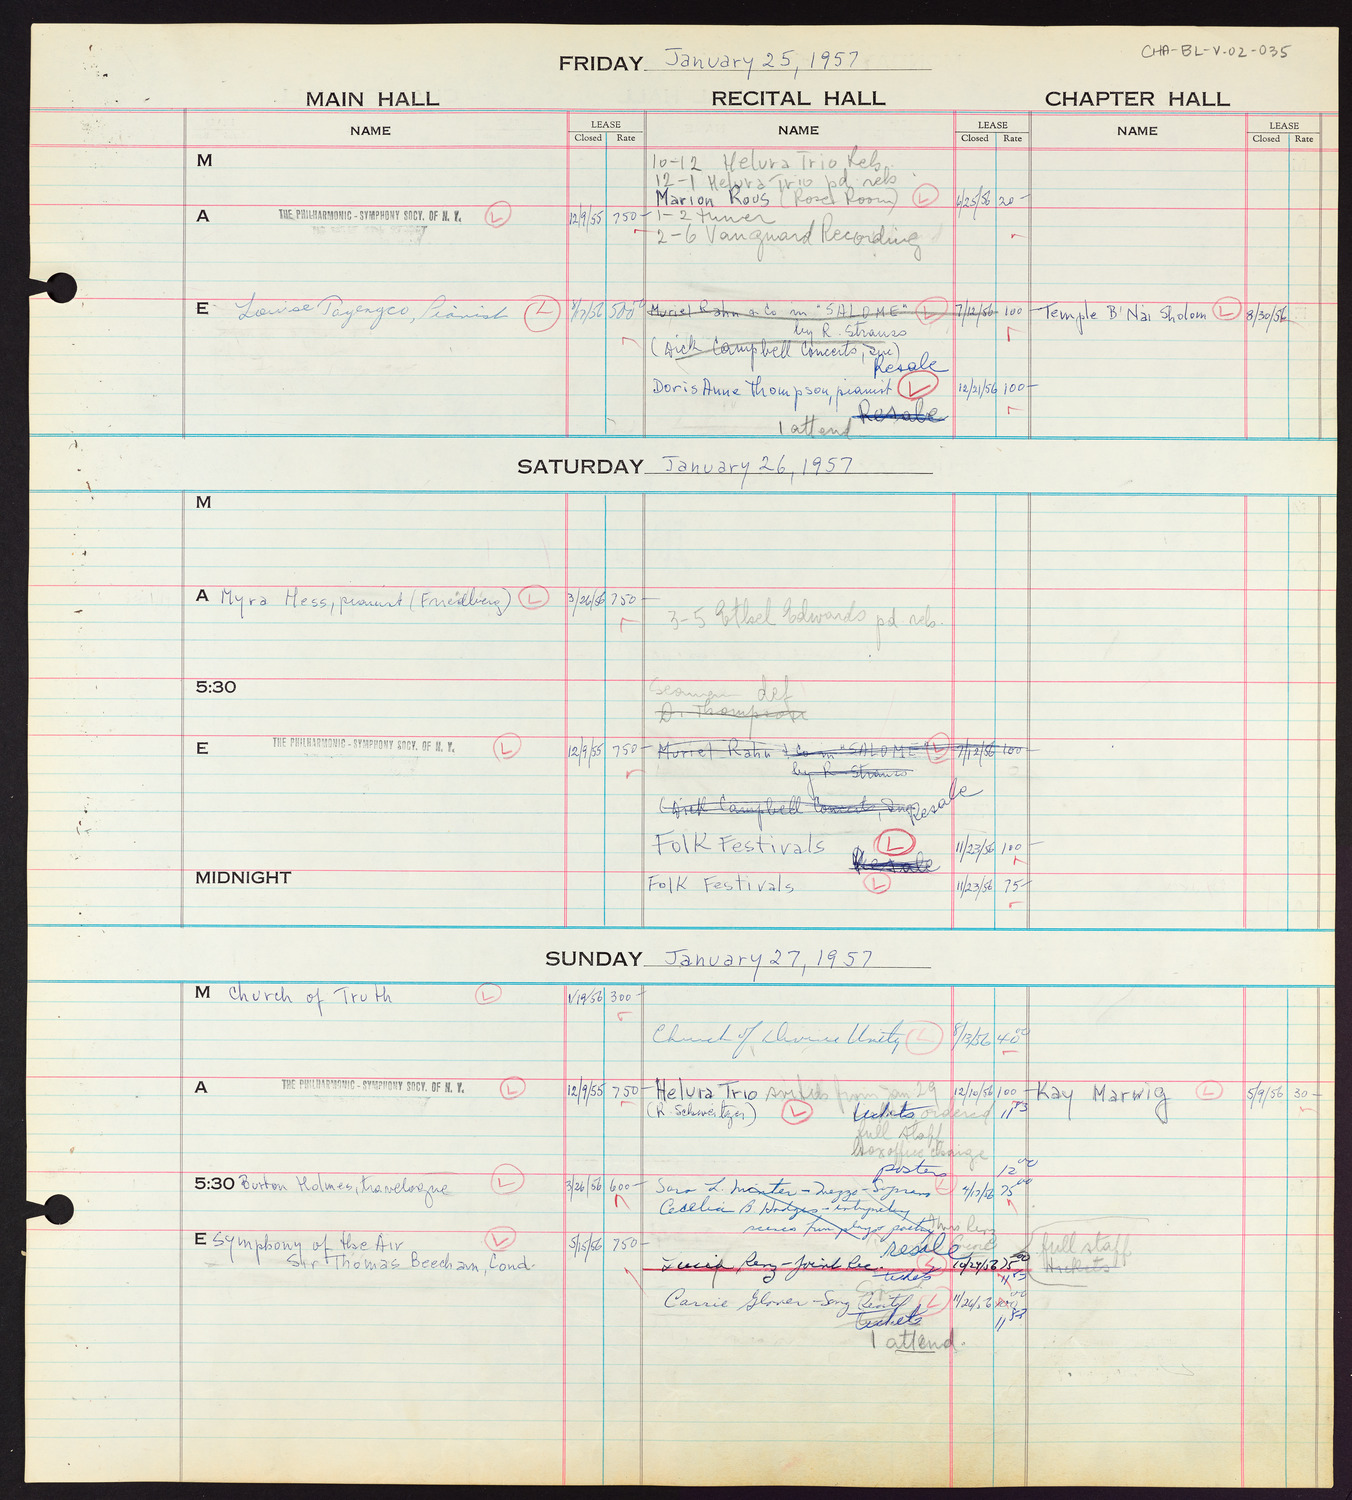 CHA-BL-V.02-035
FRIDAY January 25, 1957
MAIN HALL RECITAL HALL CHAPTER HALL
NAME LEASE Closed Rate NAME LEASE Closed Rate NAME LEASE Closed Rate
M 10-12 Helura Trio Reh.
12-1 Helura Trio pd. reh
Marion Roos (Rose Room) L 4/25/56 20-
A THE PHILHARMONIC-SYMPHONY SOCY. OF N. Y. L 12/9/55 750- 1-2 tuner
2-6 Vanguard Recording
E Louise Tayengco, Pianist L 8/7/56 500 Muriel Rahn & Co in "SALOME" L 7/12/56 100 Temple B'Nai Sholom L 8/30/56
by R. Strauss
(Dick Campbell Concerts, Inc)
Resale
Doris Anne Thompson, pianist L 12/21/56 100-
Resale
1 attend
SATURDAY January 26, 1957
M
A Myra Hess, pianist (Friedberg) L 3/26/56 750-
3-5 Ethel Edwards pd reh.
5:30 def
D. Thompson
E THE PHILHARMONIC-SYMPHONY SOCY. OF N. Y. L 12/9/55 750- Muriel Rahn & Co in "SALOME" L 7/12/56 100-
by R Strauss
(Dick Campbell Concerts, Inc) Resale
Folk Festivals L 11/23/56 100-
Resale
MIDNIGHT Folk Festivals L 11/23/56 75-
SUNDAY January 27, 1957
M Church of Truth L 1/19/56 300-
Church of Divine Unity L 8/13/56 40 00
A THE PHILHARMONIC-SYMPHONY SOCY. OF N. Y. L 12/9/55 750- Helura Trio switched from Jan 29 12/10/56 100- Kay Marwig L 5/9/56 30-
(R. Schweitzer) L tickets ordered 11 83
full staff
box office charge
posters 12 00
5:30 Burton Holmes, travelogue L 3/26/56 600- Sara L. Minter - Mezzo-Soprano L 4/17/56 75 00
Cecelia B. Hodges - interpretive
scenes from plays poetry
E Symphony of the Air L 5/15/56 750- resale full staff
Sir Thomas Beecham, Cond. Renz - Joint Rec. L 10/29/56 75 tickets
tickets 11 83
Carrie Glover - Song Recital L 11/26/56
tickets 11 83
1 attend.